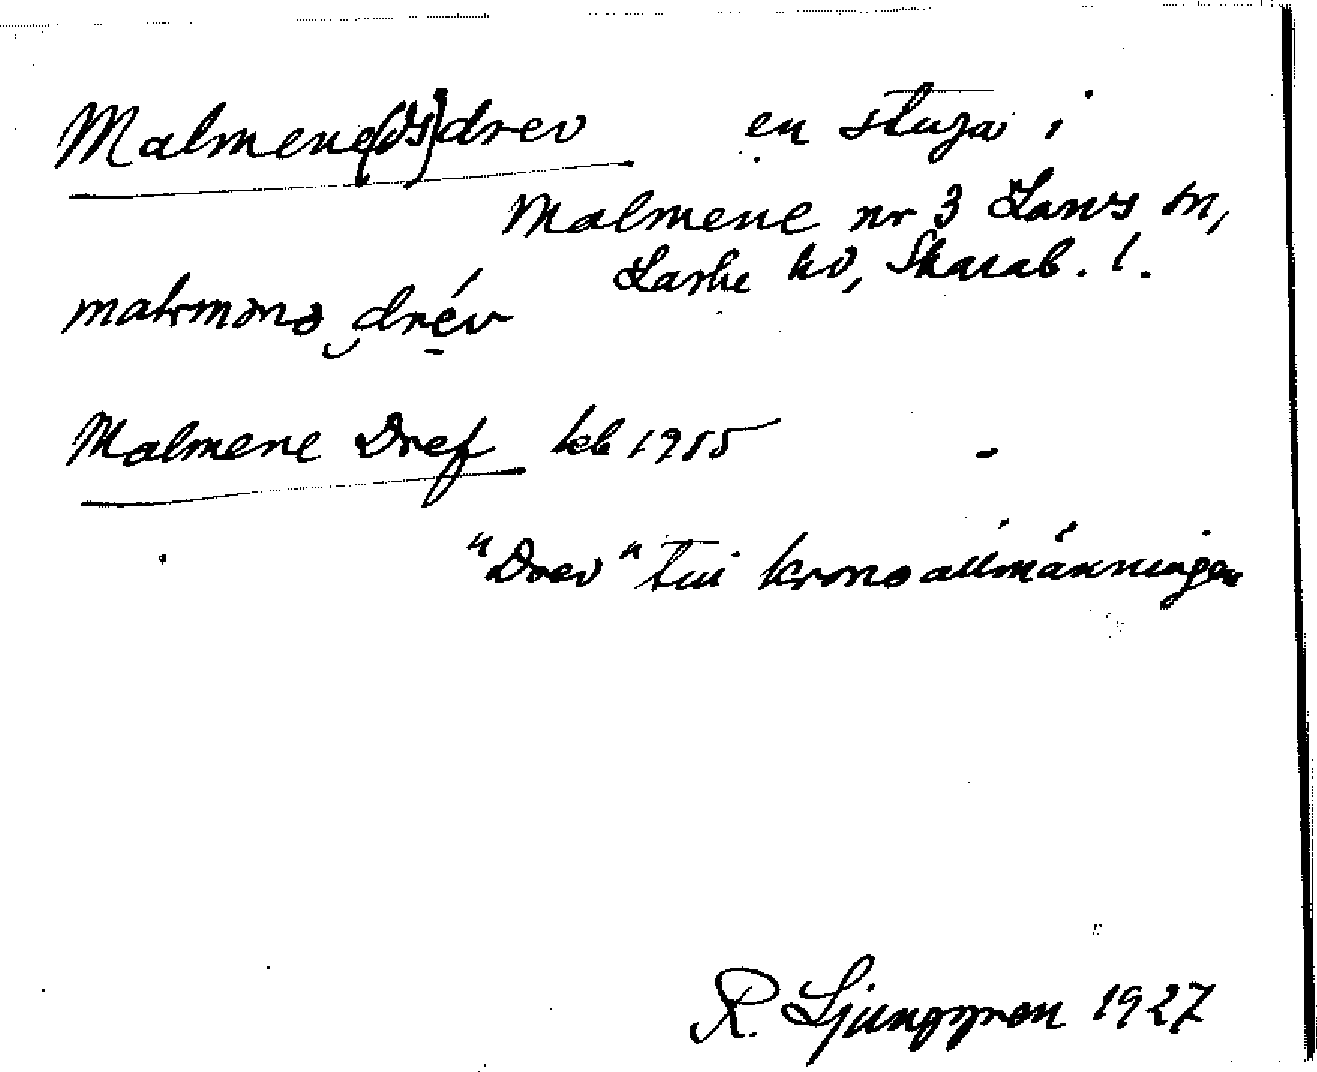 Malmene(ds)drev en stuga i
Malmene nr 3 Lavs sn,
Laske hd, Skarab. l.
malmənə drév
Malmene Dref kb 1955
"Drev" till kronoallmänningen
R. Ljunggren 1927